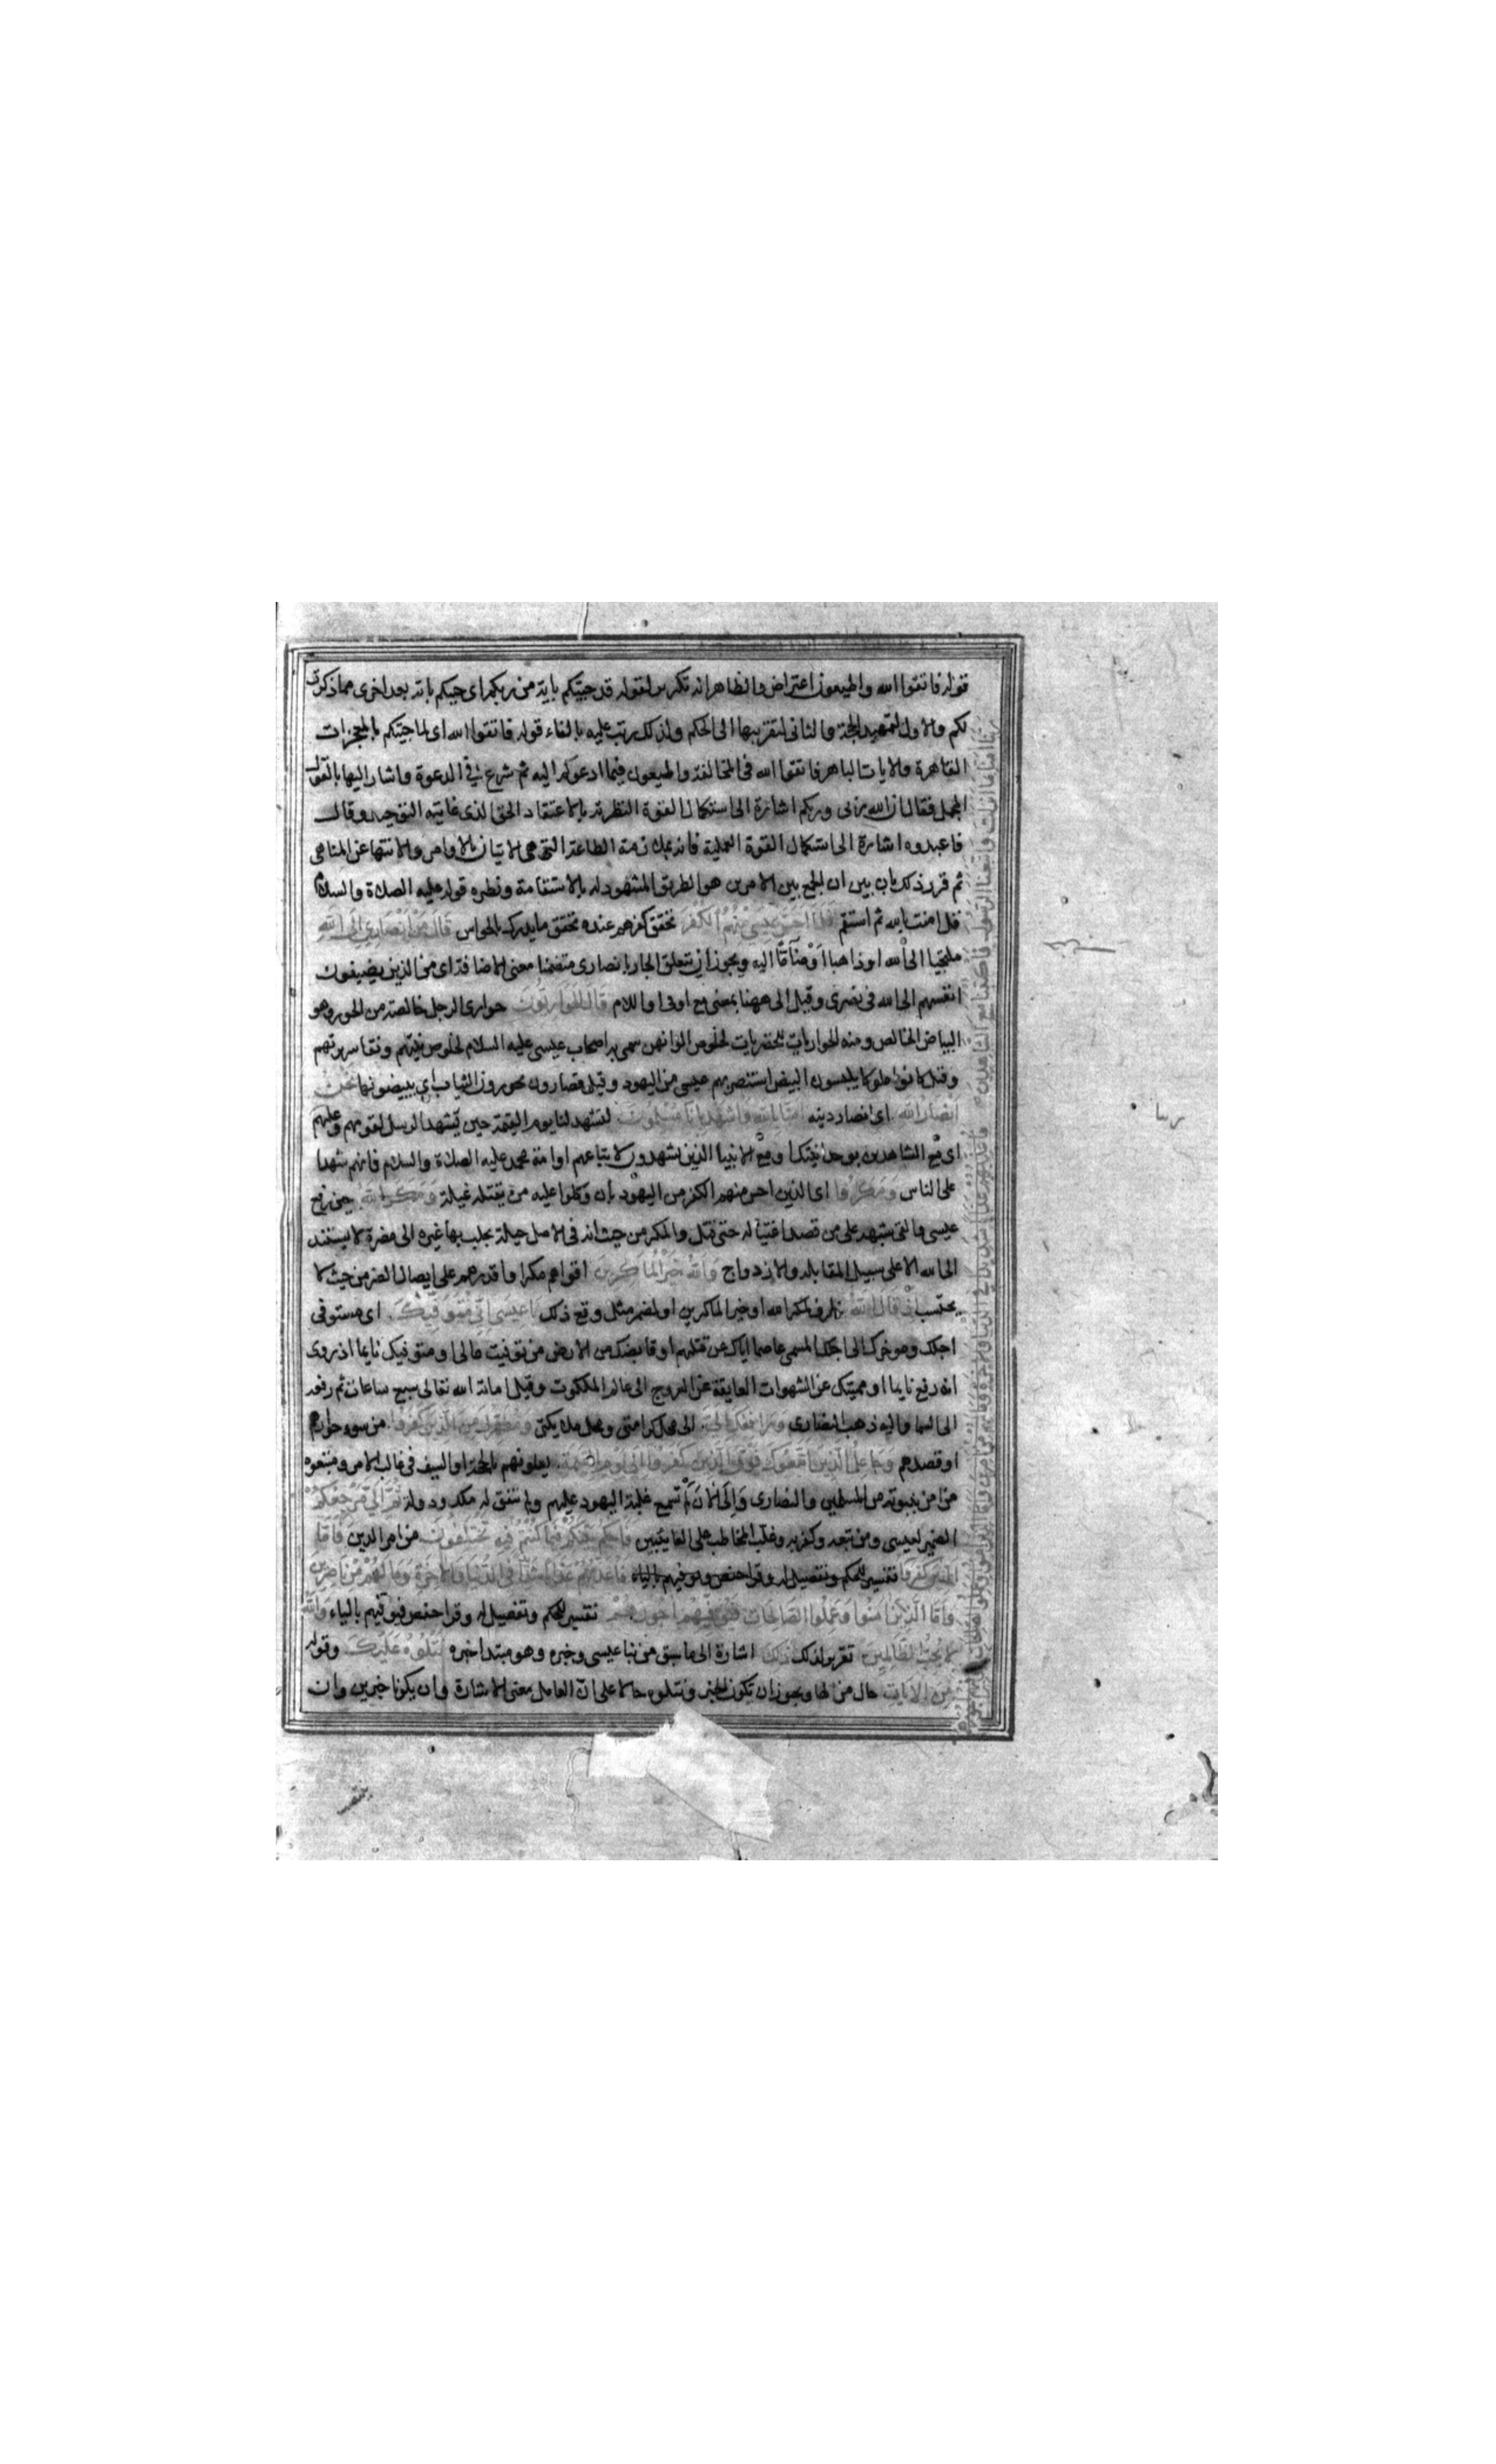 قوله فاتقوا الله واطيعون اعتراض والظاهر انه تكرير لقوله قد جيتكم باية من ربكم اى جيتكم باية بعد اخرى مما ذكرت
لكم والاول لتمهيد الحجة والثانى لتقريبها الى الحكم ولذلك رتب عليه بالفاء قوله فاتقوا الله اى لما جيتكم بالمعجزات
القاهرة والايات الباهرة فاتقوا الله فى المخالفة واطيعون فيما ادعوكم اليه ثم شرع فى الدعوة واشار اليها بالقول
المجمل فقال ان الله ربى وربكم اشارة الى استكمال القوة النظرية بالاعتقاد الحق الذى غايته التوحيد وقال
فاعبدوه اشارة الى استكمال القوة العملية فانه بملازمة الطاعة التى هى الاتيان بالاوامر والانتها عن المناهى
ثم قرر ذلك بان بين ان الجمع بين الامرين هو الطريق المشهود له بالاستقامة ونظيره قوله عليه الصلاة والسلام
قل امنت بالله ثم استقم فَلَمَّا اَحَسَّ عِيسَى مِنْهُمُ الكُفْرَ تحقق كفرهم عنده تحقق ما يدرك بالحواس قَالَ مَنْ اَنْصَارِى اِلَى اللهِ
ملتجيا الى الله او ذاهبا اَوْ ضَآمًّا اليه ويجوز ان يتعلق الجار بانصارى متضمنا معنى الاضافة اى من الذين يضيفون
انفسهم الى الله فى نصرى وقيل الى ههنا بمعنى مع او فى او اللام قَالَ الحَوَارِيُّونَ حوارى الرجل خالصته من الحور وهو
البياض الخالص ومنه الحواريات للحضريات لخلوص الوانهن سمى به اصحاب عيسى عليه السلام لخلوص نيتهم ونقا سريرتهم
وقيل كانوا ملوكا يلبسون البيض استنصر بهم عيسى من اليهود وقيل قصارون يحورون الثياب اى يبيضونها نَحْنُ
اَنْصَارُ الله اى انصار دينه امَنَّا بِاللهِ وَاشْهَدْ بِاَنَّا مُسْلِمُونَ لتشهد لنا يوم القيمة حين يشهد الرسل لقومهم وعليهم
اى مع الشاهدين بوحدانيتك او مع الانبيا الذين يشهدون لاتباعهم او امة محمد عليه الصلاة والسلام فانهم شهدا
على الناس وَمَكَرُوا اى الذين احس منهم الكفر من اليهود بان وكلوا عليه من يقتله غيلة وَمَكَرَ اللهُ حين رفع
عيسى والقى شبهه على من قصد اغتياله حتى قتل والمكر من حيث انه فى الاصل حيلة يجلب بها غيره الى مضرة لا يسند
الى الله الا على سبيل المقابلة والازدواج وَاللهُ خَيْرُ المَاكِرِينَ اقواهم مكرا واقدرهم على ايصال الضر من حيث لا
يحتسب اِذْ قَالَ اللهُ ظرف لمكر الله او خير الماكرين او لمضمر مثل وقع ذلك يَا عِيسَى اِنِّى مُتَوَفِّيكَ اى مستوفى
اجلك وموخرك الى اجلك المسمى عاصما اياك عن قتلهم او قابضك من الارض من توفيت مالى او متوفيك نايما اذ روى
انه رفع نايما او مميتك عن الشهوات العايقة عن العروج الى عالم الملكوت وقيل اماته الله تعالى سبع ساعات ثم رفعه
الى السما واليه ذهب النصارى وَرَافِعُكَ اِلَىَّ الى محل كرامتى ومحل ملايكتى وَمُطَهِّرُكَ مِنَ الَّذِينَ كَفَرُوا من سوء جوارهم
او قصدهم وَجَاعِلُ الَّذِينَ اتَّبَعُوكَ فَوْقَ الَّذِينَ كَفَرُوا اِلَى يَوْمِ القِيمَةِ يعلونهم بالحجة او السيف فى غالب الامر ومتبعوه
من امن بنبوته من المسلمين والنصارى وَاِلَى الْانَ لَمْ تسمع غلبة اليهود عليهم ولم يتفق لهم ملك ودولة ثُمَّ اِلَىَّ مَرْجِعُكُمْ
الضمير لعيسى ومن تبعه وكفر به وغلب المخاطب على الغايبين فَاَحْكُمُ بَيْنَكُمْ فِيمَا كُنْتُمْ فِيهِ تَخْتَلِفُونَ من امر الدين فَاَمَّا
الَّذِينَ كَفَرُوا تفسير للحكم وتفصيل له وقرا حفص ونوفيهم بالياء فَاُعَذِّبُهُمْ عَذَابًا شَدِيدًا فِى الدُّنْيَا وَالاخِرَةِ وَمَا لَهُمْ مِنْ نَاصِرِينَ
وَاَمَّا الَّذِينَ امَنُوا وَعَمِلُوا الصَّالِحَاتِ فَيُوَفِّيهِمْ اُجُورَهُمْ تفسير للحكم وتفصيل له وقرا حفص فيوفيهم بالياء وَاللهُ
لَا يُحِبُّ الظَّالِمِينَ تقرير لذلك ذَلِكَ اشارة الى ما سبق من نبا عيسى وخبره وهو مبتدا خبره نَتْلُوهُ عَلَيْكَ وقوله
مِنَ الْايَاتِ حال من الها ويجوز ان يكون الخبر ونتلوه حالا على انّ العامل معنى الاشارة وان يكونا خبرين وان
رَبَّنَا امَنَّا بِمَا اَنْزَلْتَ وَاتَّبَعْنَا الرَّسُولَ فَاكْتُبْنَا مَعَ الشَّاهِدِينَ